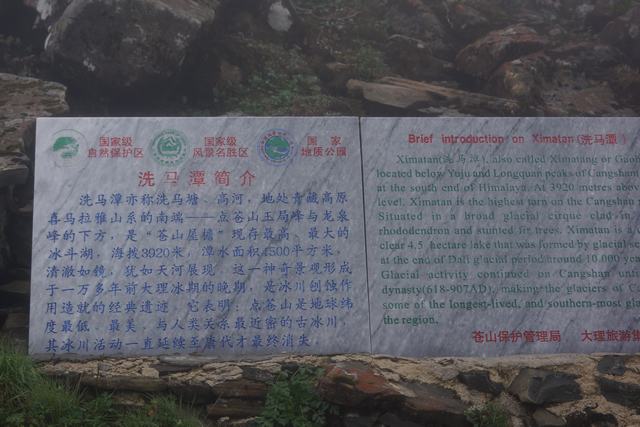 国家级
自然保护区
国家级
风景名胜区
国 家
地质公园
洗马潭简介
洗马潭亦称洗马塘、高河,地处青藏高原
喜马拉雅山系的南端——点苍山玉局峰与龙泉
峰的下方,是“苍山屋檐”现存最高、最大的
冰斗湖,海拔3920米,潭水面积4500平方米,
清澈如镜,犹如天河展现。这一神奇景观形成
于一万多年前大理冰期的晚期,是冰川刨蚀作
用造就的经典遗迹。它表明:点苍山是地球纬
度最低、最美、与人类关系最近密的古冰川,
其冰川活动一直延续至唐代才最终消失。
Brief introduction on Ximatan(洗马潭)
Ximatan(洗马潭), also called Ximatang or Gaoh
located below Yuju and Longquan peaks of Cangsha
at the south end of Himalaya. At 3920 metres abov
level, Ximatan is the highest tarn on the Cangshan
Situated in a broad glacial cirque clad in
rhododendron and stunted fir trees, Ximatan is a
clear 4.5 hectare lake that was formed by glacial
at the end of Dali glacial period around 10,000 year
Glacial activity continued on Cangshan unt
dynasty(618-907AD), making the glaciers of C
some of the longest-lived, and southern-most gla
the region.
苍山保护管理局 大理旅游集